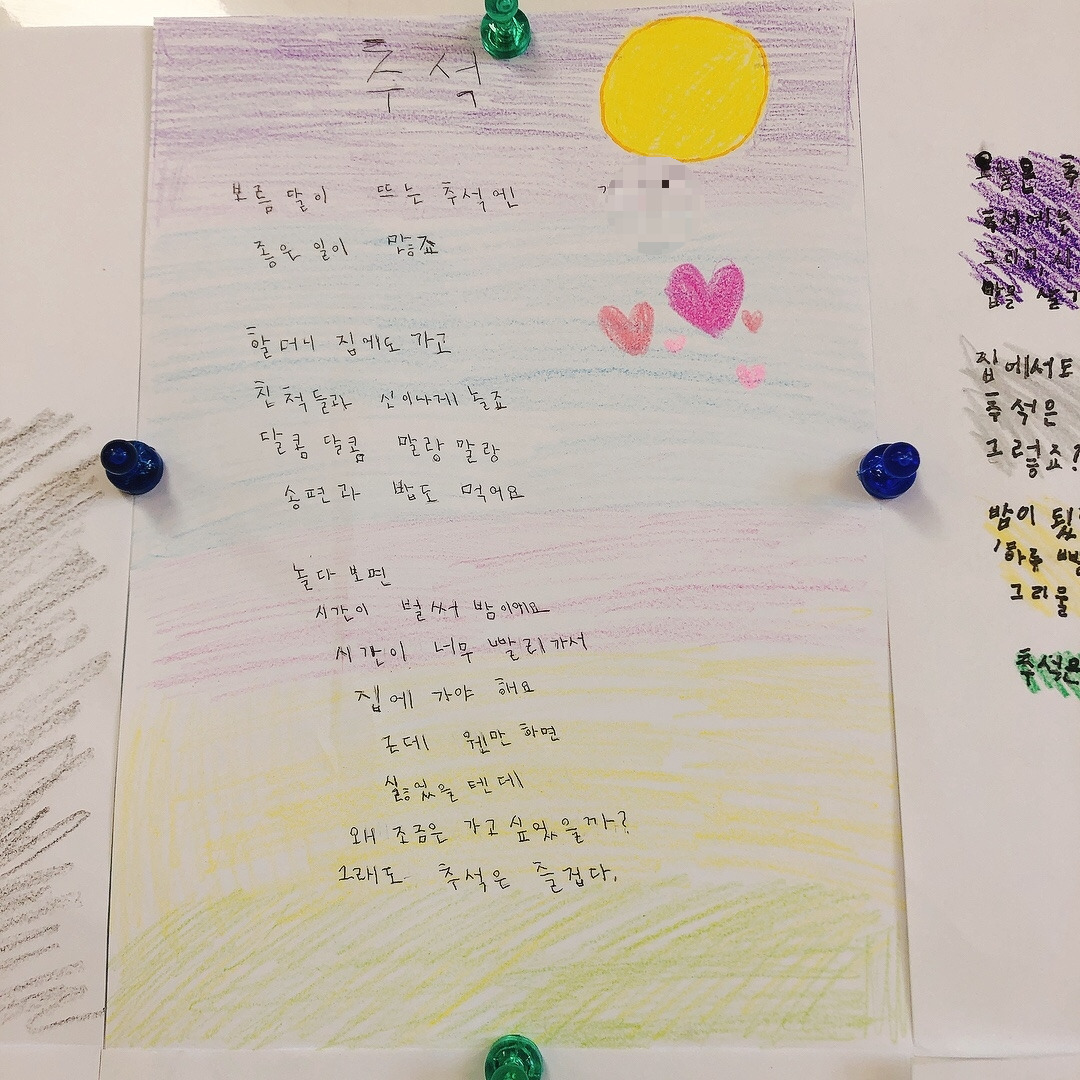 추석
보름달이 뜨는 추석엔
좋은 일이 많죠
할머니 집에도 가고
친척들과 신이나게 놀죠
달콤달콤 말랑말랑
송편과 밥도 먹어요
놀다보면
시간이 벌써 밤이에요
시간이 너무 빨리가서
집에 가야 해요
근데 웬만하면
싫었을텐데
왜 조금은 가고싶었을까?
그래도 추석은 즐겁다.
오늘은 추
추석에는
그리고,
밥을
집에서도
추석은
그렇죠?
밥이
'하루
그리울
추석은